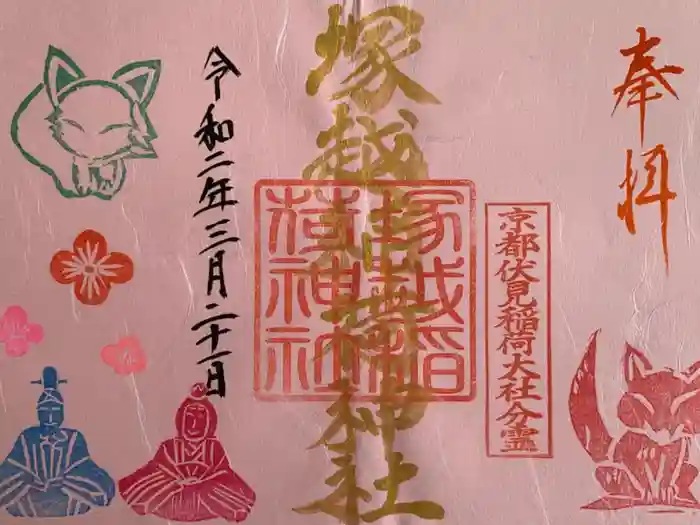 奉拝
京都伏見稲荷大社分霊
塚越稲荷神社
塚越稲荷神社
令和二年三月二十一日